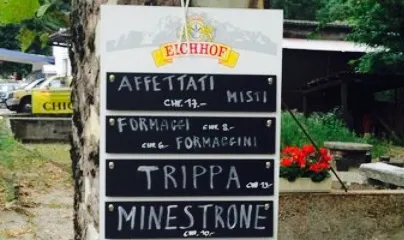 EICHHOF
AFFETTATI
CHF. 17.- MISTI
FORMAGGI CHF 8.-
CHF 6.- FORMAGGINI
TRIPPA CHF 13
MINESTRONE
CHF. 10.-